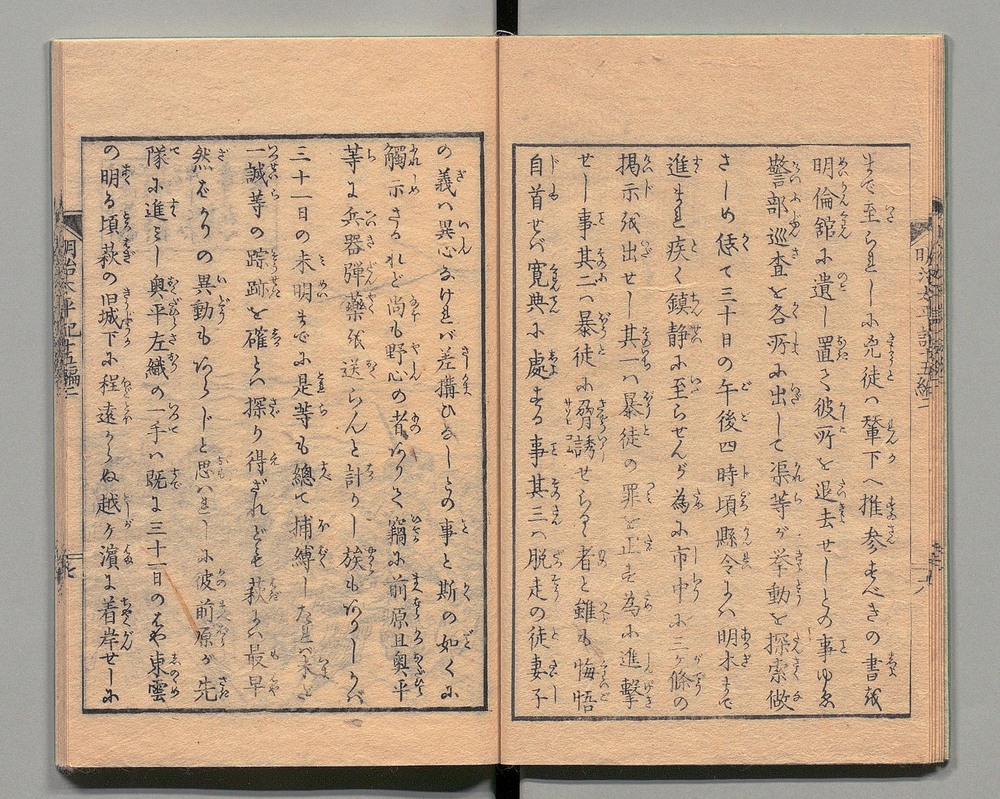 まで至られしに兇徒ハ輦下へ推参すべきの書を
明倫舘に遺し置て彼所を退去せしとの事ゆゑ
警部巡査を各所に出して渠等が挙動を探索做
さしめ偖て三十日の午後四時頃縣令にハ明木まで
進まれ疾く鎮静に至らせんが為に市中に三ヶ條の
掲示を出せし其一ハ暴徒の罪を正す為に進撃
せし事其二ハ暴徒に脅誘せらるゝ者と雖も悔悟
自首せバ寛典に處する事其三ハ脱走の徒妻子
の義ハ異心なけれバ差搆ひなしとの事と斯の如くに
觸示さるれど尚も野心の者ありて竊に前原且奥平
等に兵器彈藥を送らんと計りし族もありしかバ
三十一日の未明までに是等も總て捕縛したれバ未だ
一誠等の踪跡を確とハ探り得ざれども萩にハ最早
然ばかりの異動もあらじと思ハれしに彼前原が先
隊に進みし奥平左織の一手ハ既に三十一日のはや東雲
の明る頃萩の旧城下に程遠からぬ越ヶ濵に着岸せしに
明治太平記十五編二